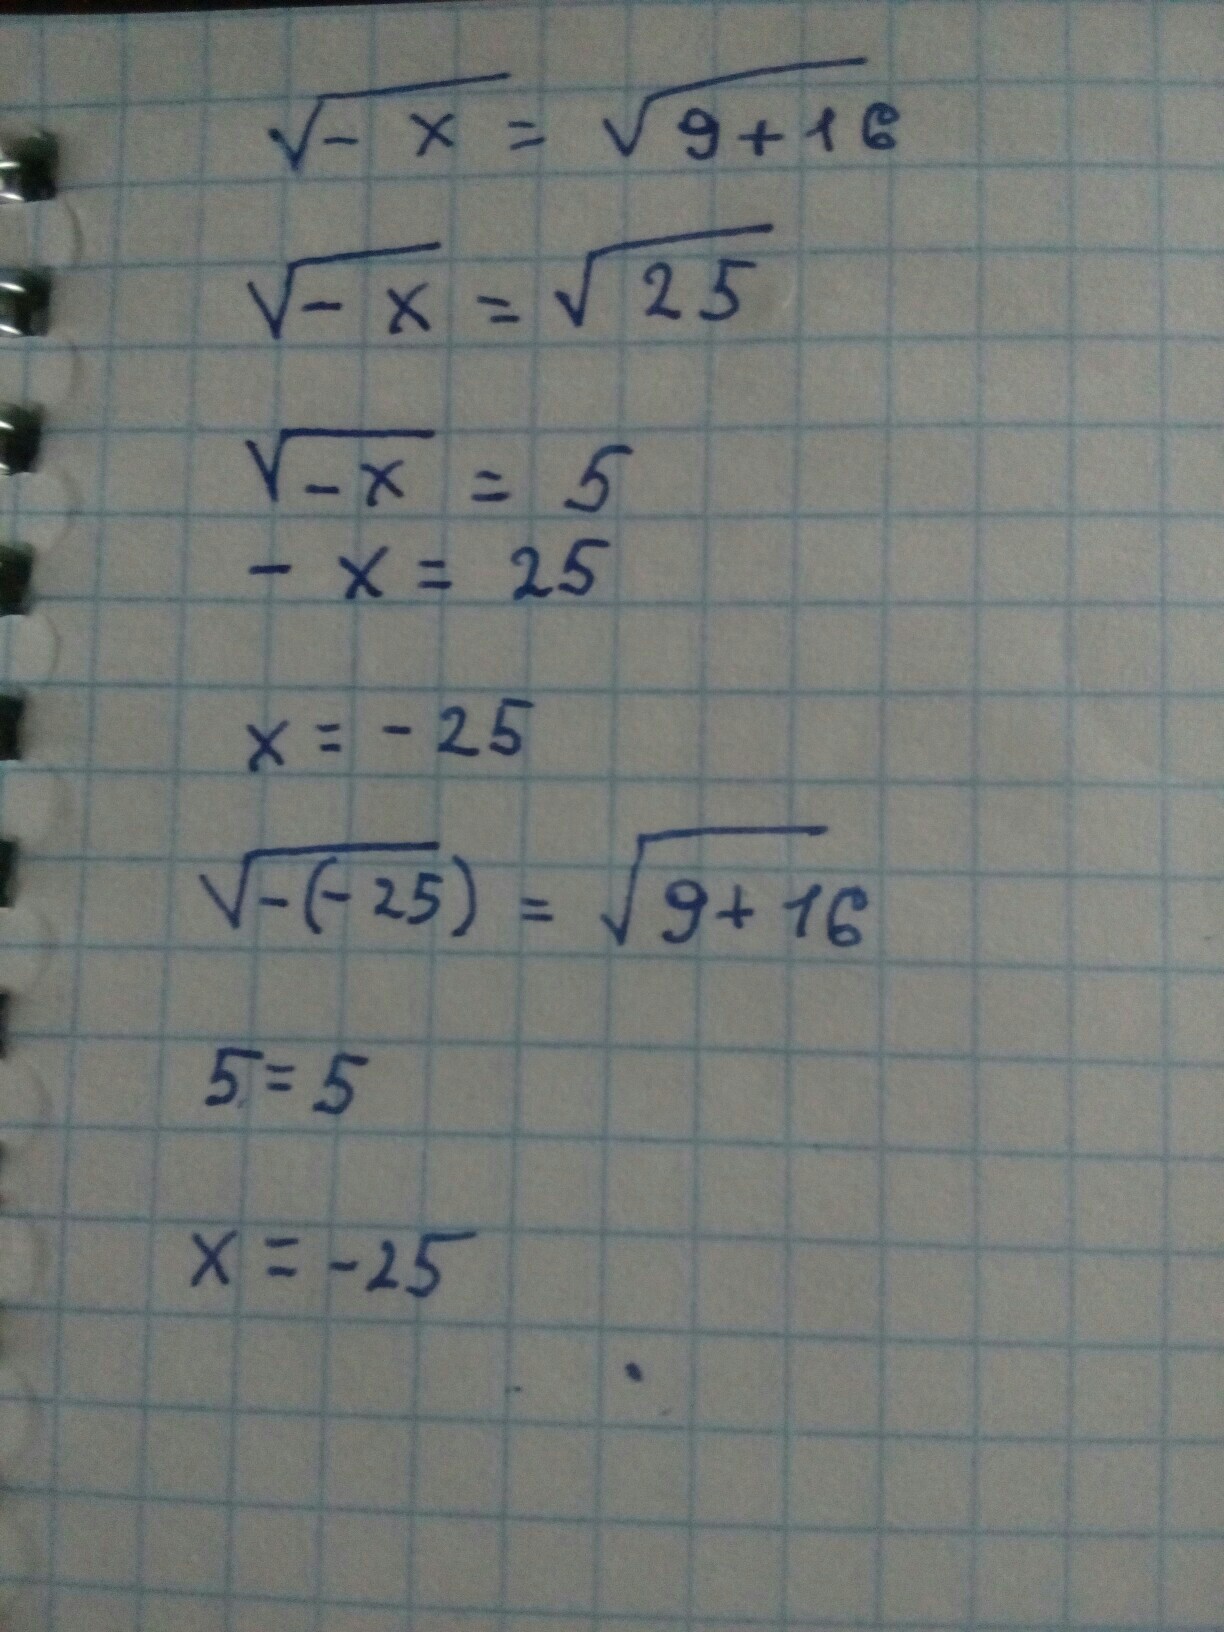 √- x = √9+16
√- x = √25
√-x = 5
- x = 25
x = -25
√-(-25) = √9+16
5=5
x = -25